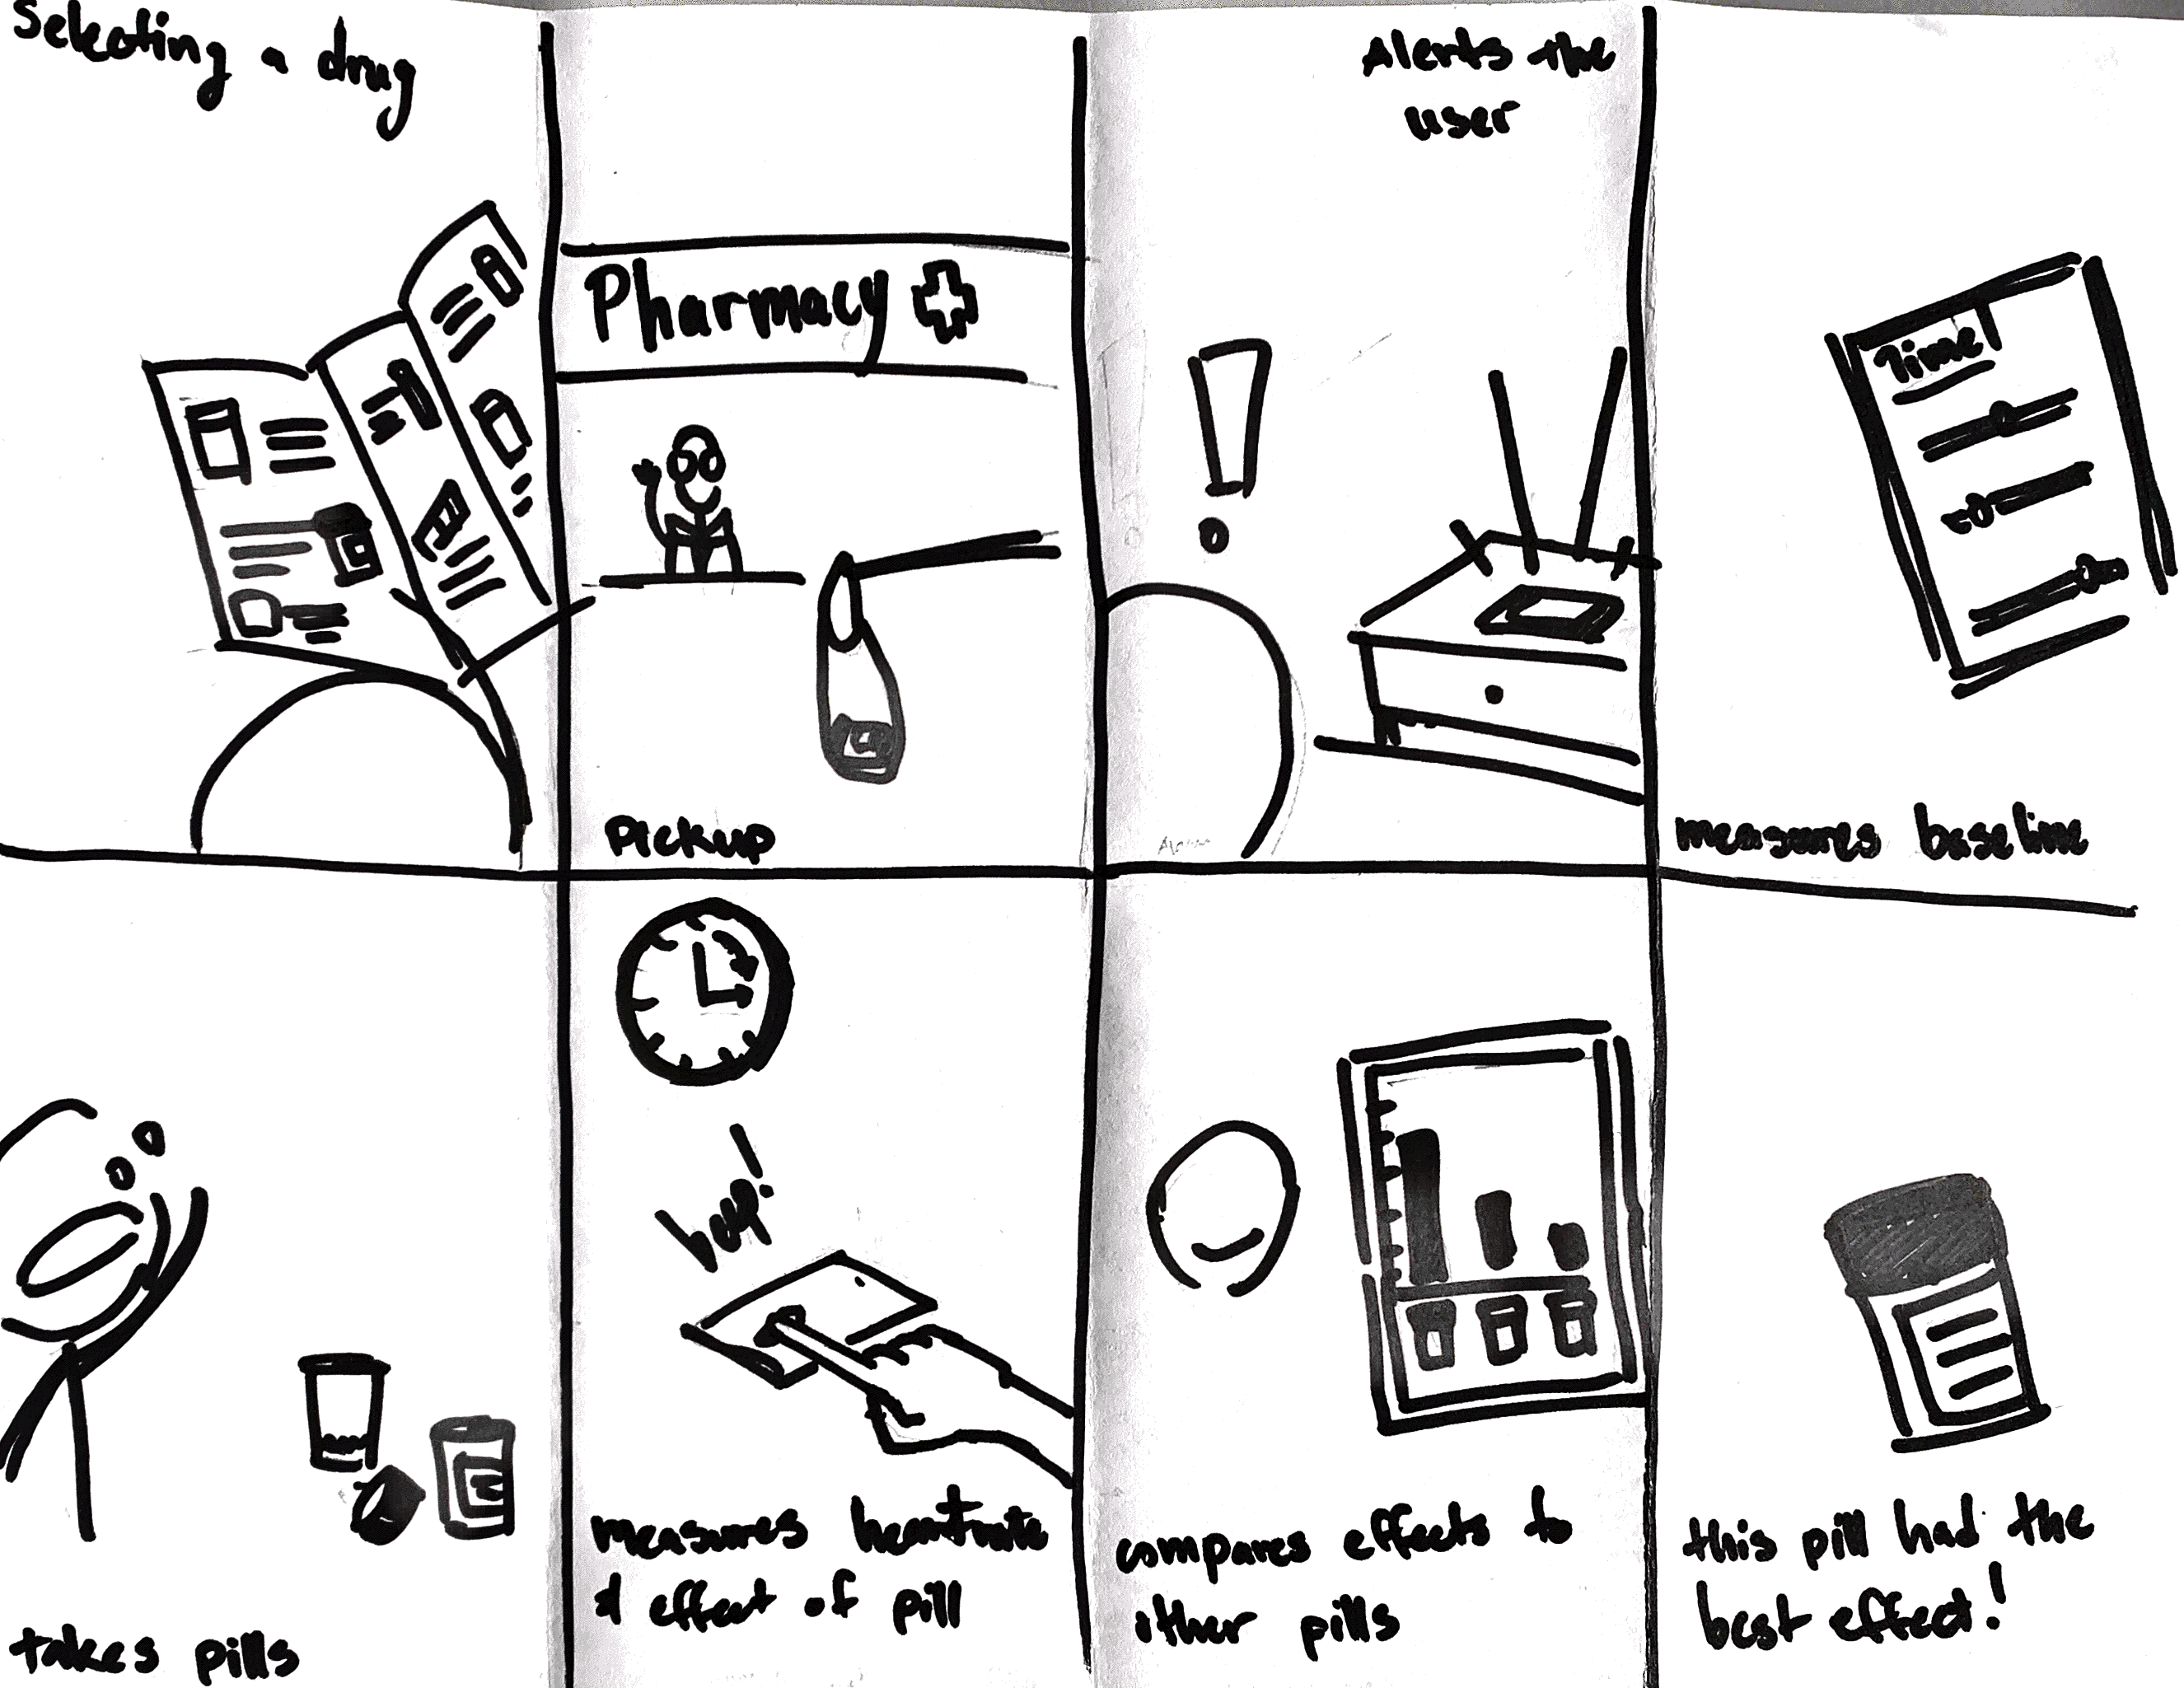 Selecting a drug
Pharmacy
Pickup
Alerts the
user
Time
measures baseline
takes pills
beep!
measures heartrate
& effect of pill
compares effects to
other pills
this pill had the
best effect!